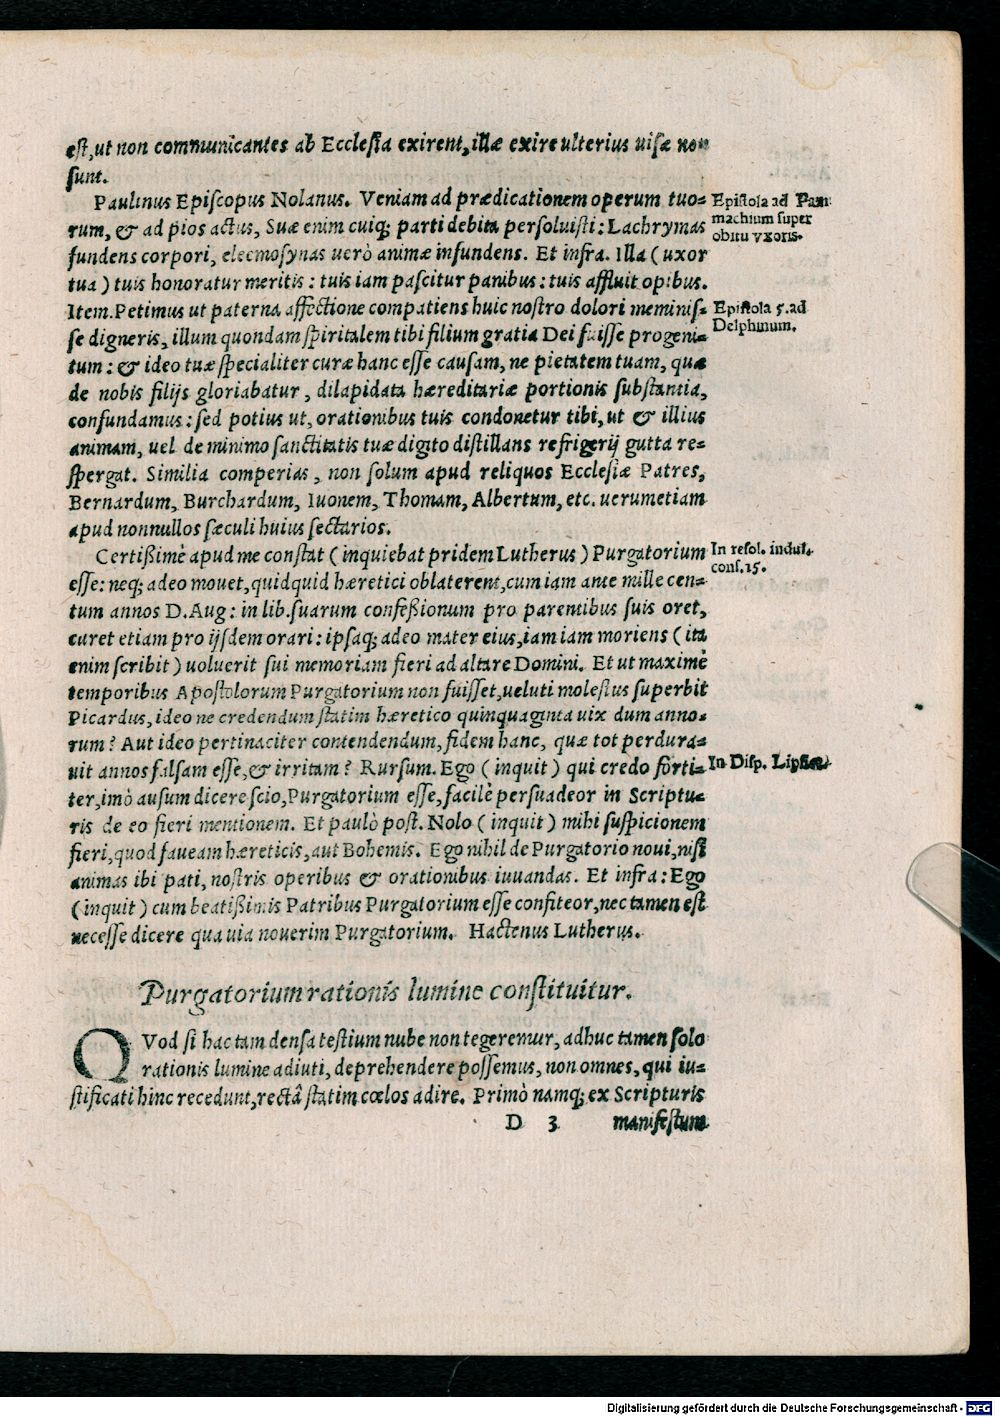 est, ut non communicantes ab Ecclesia exirent, illæ exire ulterius uisæ non
sunt.
Paulinus Episcopus Nolanus. Veniam ad prædicationem operum tuo=
rum, & ad pios actus, Suæ enim cuiq; parti debita persoluisti: Lachrymas
fundens corpori, eleemosynas uerò animæ infundens. Et infra. Illa (uxor
tua) tuis honoratur meritis: tuis iam pascitur panibus: tuis affluit opibus.
Epistola ad Pam
machium super
obitu vxoris.
Item. Petimus ut paterna affectione compatiens huic nostro dolori meminis=
se digneris, illum quondam spiritalem tibi filium gratia Dei fuisse progeni=
tum: & ideo tuæ specialiter curæ hanc esse causam, ne pietatem tuam, quæ
de nobis filijs gloriabatur, dilapidata hæreditariæ portionis substantia,
confundamus: sed potius ut, orationibus tuis condonetur tibi, ut & illius
animam, uel de minimo sanctitatis tuæ digito distillans refrigerij gutta re=
spergat. Similia comperias, non solum apud reliquos Ecclesiæ Patres,
Bernardum, Burchardum, Iuonem, Thomam, Albertum, etc. uerumetiam
apud nonnullos sæculi huius sectarios.
Epistola 5. ad
Delphinum.
Certißimè apud me constat (inquiebat pridem Lutherus) Purgatorium
esse: neq; adeo mouet, quidquid hæretici oblaterent, cum iam ante mille cen=
tum annos D. Aug: in lib. suarum confeßionum pro parentibus suis oret,
curet etiam pro ijsdem orari: ipsaq; adeo mater eius, iam iam moriens (ita
enim scribit) uoluerit sui memoriam fieri ad altare Domini. Et ut maximè
temporibus Apostolorum Purgatorium non fuisset, ueluti molestus superbit
Picardus, ideo ne credendum statim hæretico quinquaginta uix dum anno=
rum? Aut ideo pertinaciter contendendum, fidem hanc, quæ tot perdura=
uit annos falsam esse, & irritam? Rursum. Ego (inquit) qui credo forti=
ter, imò ausum dicere scio, Purgatorium esse, facilè persuadeor in Scriptu=
ris de eo fieri mentionem. Et paulò post. Nolo (inquit) mihi suspicionem
fieri, quod faueam hæreticis, aut Bohemis. Ego nihil de Purgatorio noui, nisi
animas ibi pati, nostris operibus & orationibus iuuandas. Et infra: Ego
(inquit) cum beatißimis Patribus Purgatorium esse confiteor, nec tamen est
necesse dicere qua uia nouerim Purgatorium. Hactenus Lutherus.
In resol. indul.
conf. 15.
In Disp. Lipsica.
Purgatorium rationis lumine constituitur.
QVod si hac tam densa testium nube non tegeremur, adhuc tamen solo
rationis lumine adiuti, deprehendere possemus, non omnes, qui iu=
stificati hinc recedunt, rectâ statim cœlos adire. Primò namq; ex Scripturis
D 3 manifestum
Digitalisierung gefördert durch die Deutsche Forschungsgemeinschaft - DFG